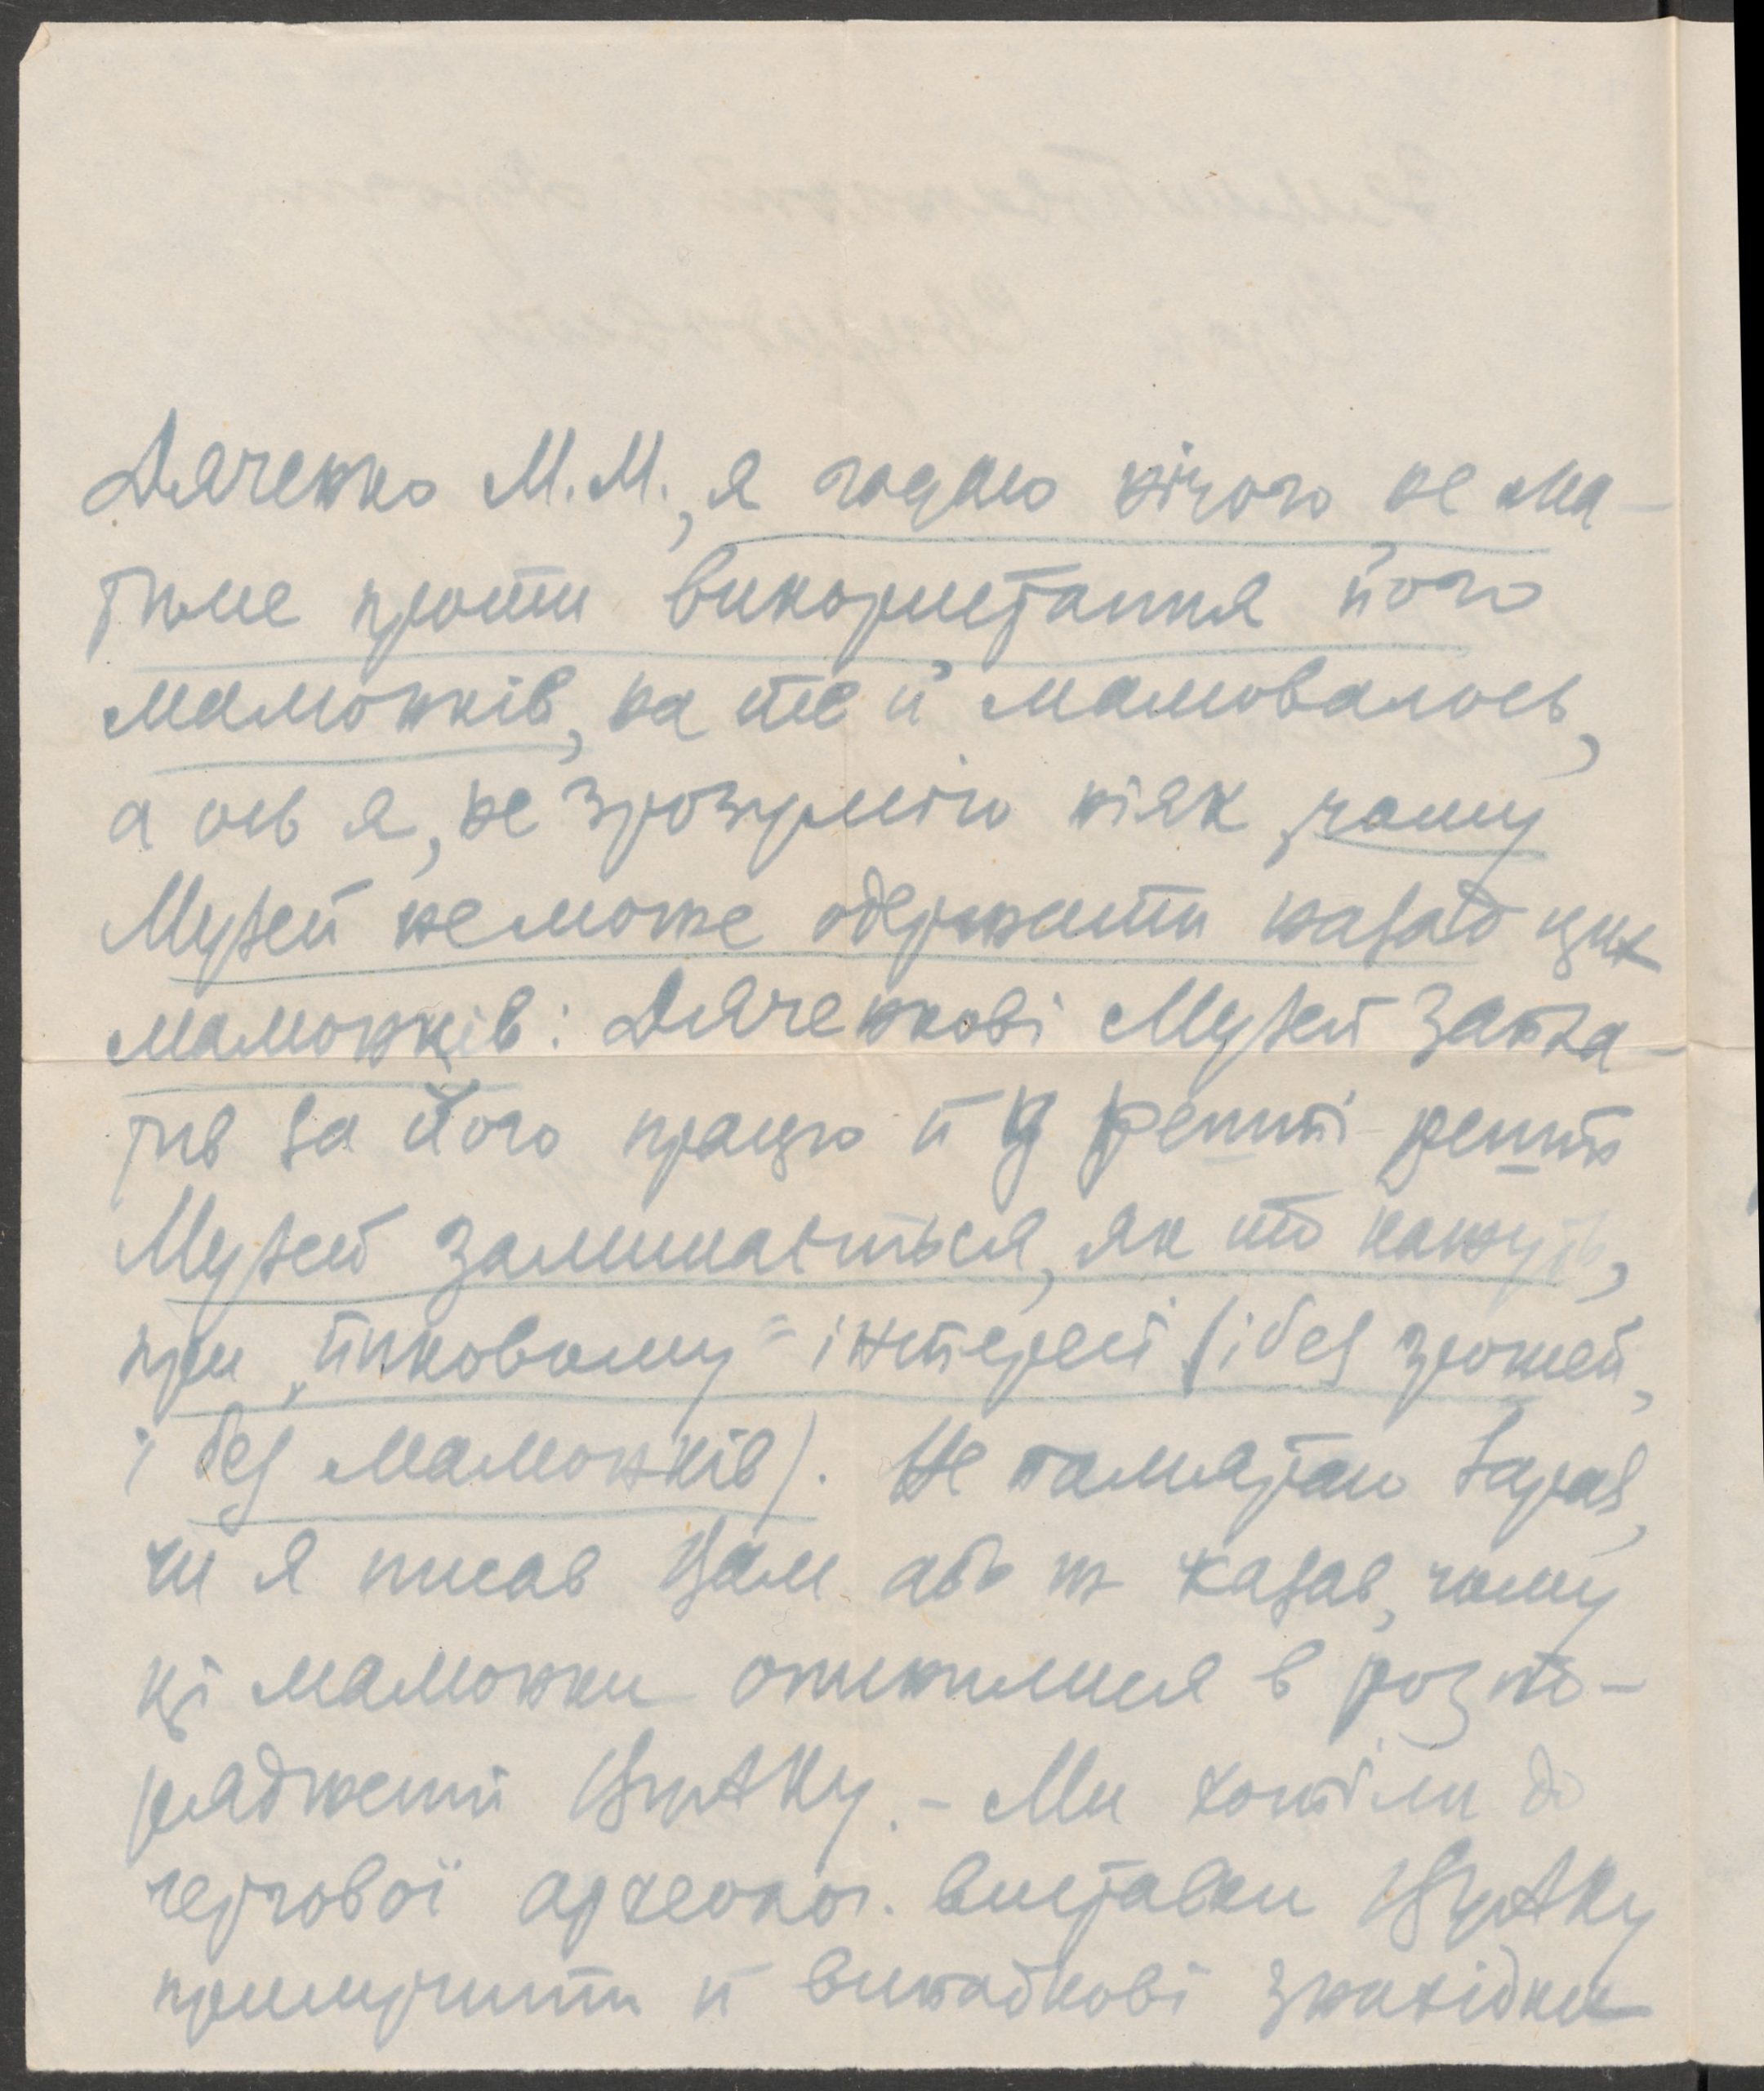 Дяченко М.М., я гадаю нічого не ма-
тиме проти використання його
малюнків, на те й малювалось,
а ось я, не зрозумію ніяк чому
Музей неможе одержати назад цих
малюнків: Дяченкові Музей запла-
тив за його працю й в решті решт
Музей залишається, як то кажуть,
при „пиковому" інтересі (і без грошей,
і без малюнків). Не памятаю зараз,
чи я писав Вам або ж казав, чому
ці малюнки опинилися в розпо-
рядженні ВУАКу. - Ми хотіли до
чергової археолог. виставки ВУАКу
прилучити й випадкові знахідки